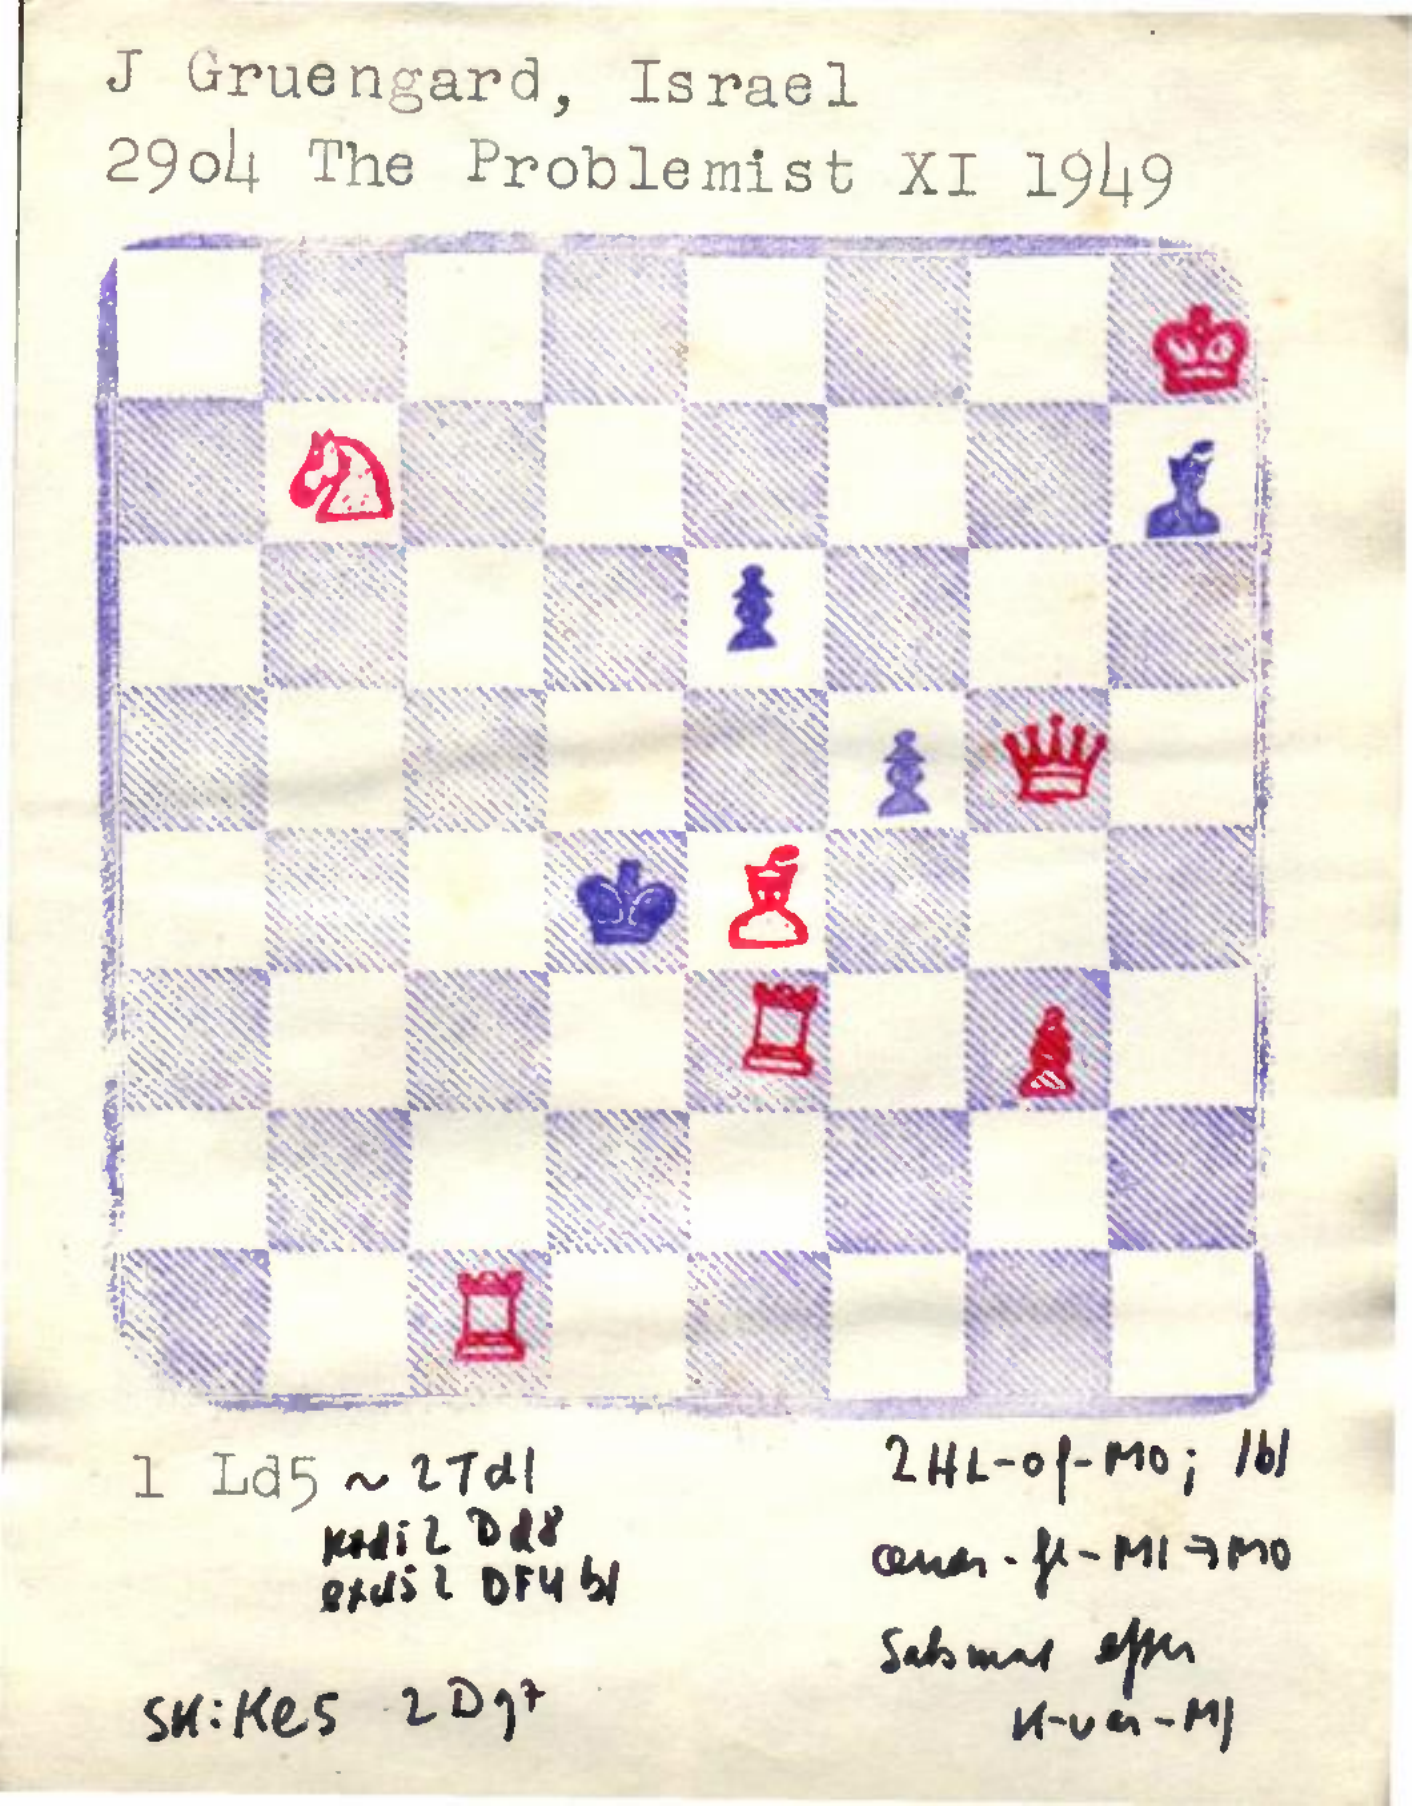 J Gruengard, Israel
29o4 The Problemist XI 1949
1 Ld5 ~ 2Td1
2 Dd8
exd5 2 DF4 bl
SK: Ke5 2Dg7
2HL-of-M0; /bl
M1→M0
Satsmat efter
K-var-M1